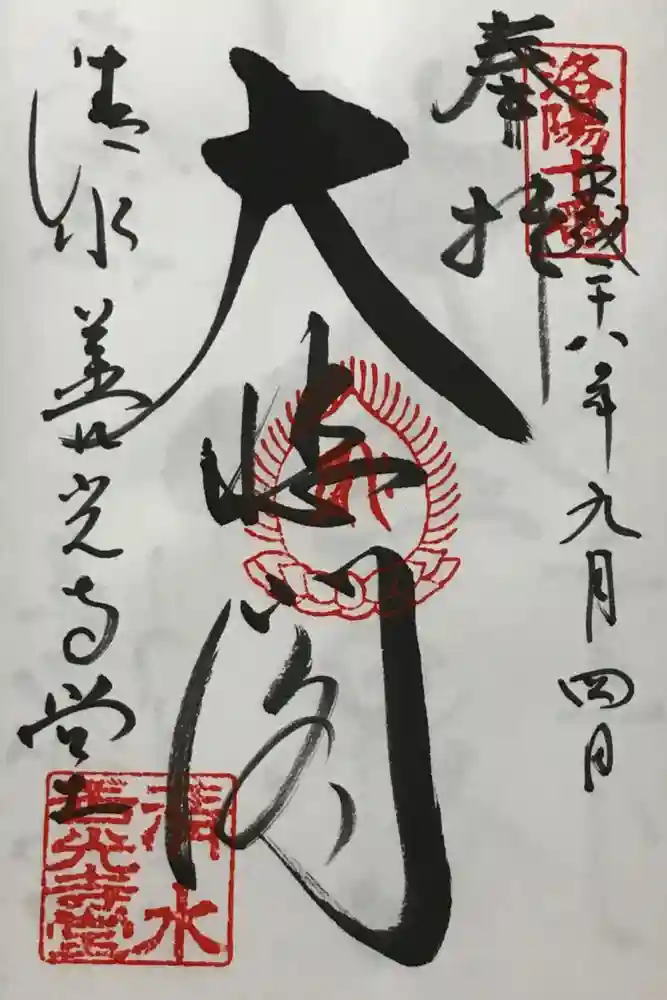 奉拝
洛陽十番
平成二十八年九月四日
大悲閣
清水善光寺堂
清水
善光寺堂